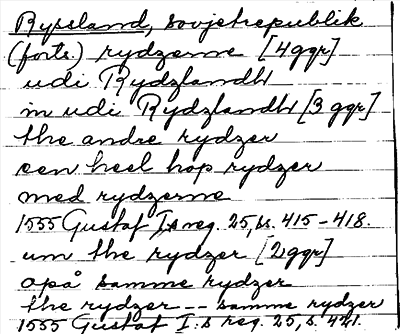 Ryssland, sovjetrepublik
(forts.) rydzerne [4 ggr]
udi Rydzlandh
in udi Rydzlandh [3 ggr]
the andre rydzer
een heel hop rydzer
med rydzerne
1555 Gustaf I.s reg. 25, ss. 415-418.
um the rydzer [2 ggr]
opå samme rydzer
the rydzer -- samme rydzer
1555 Gustaf I.s reg. 25, s. 421.